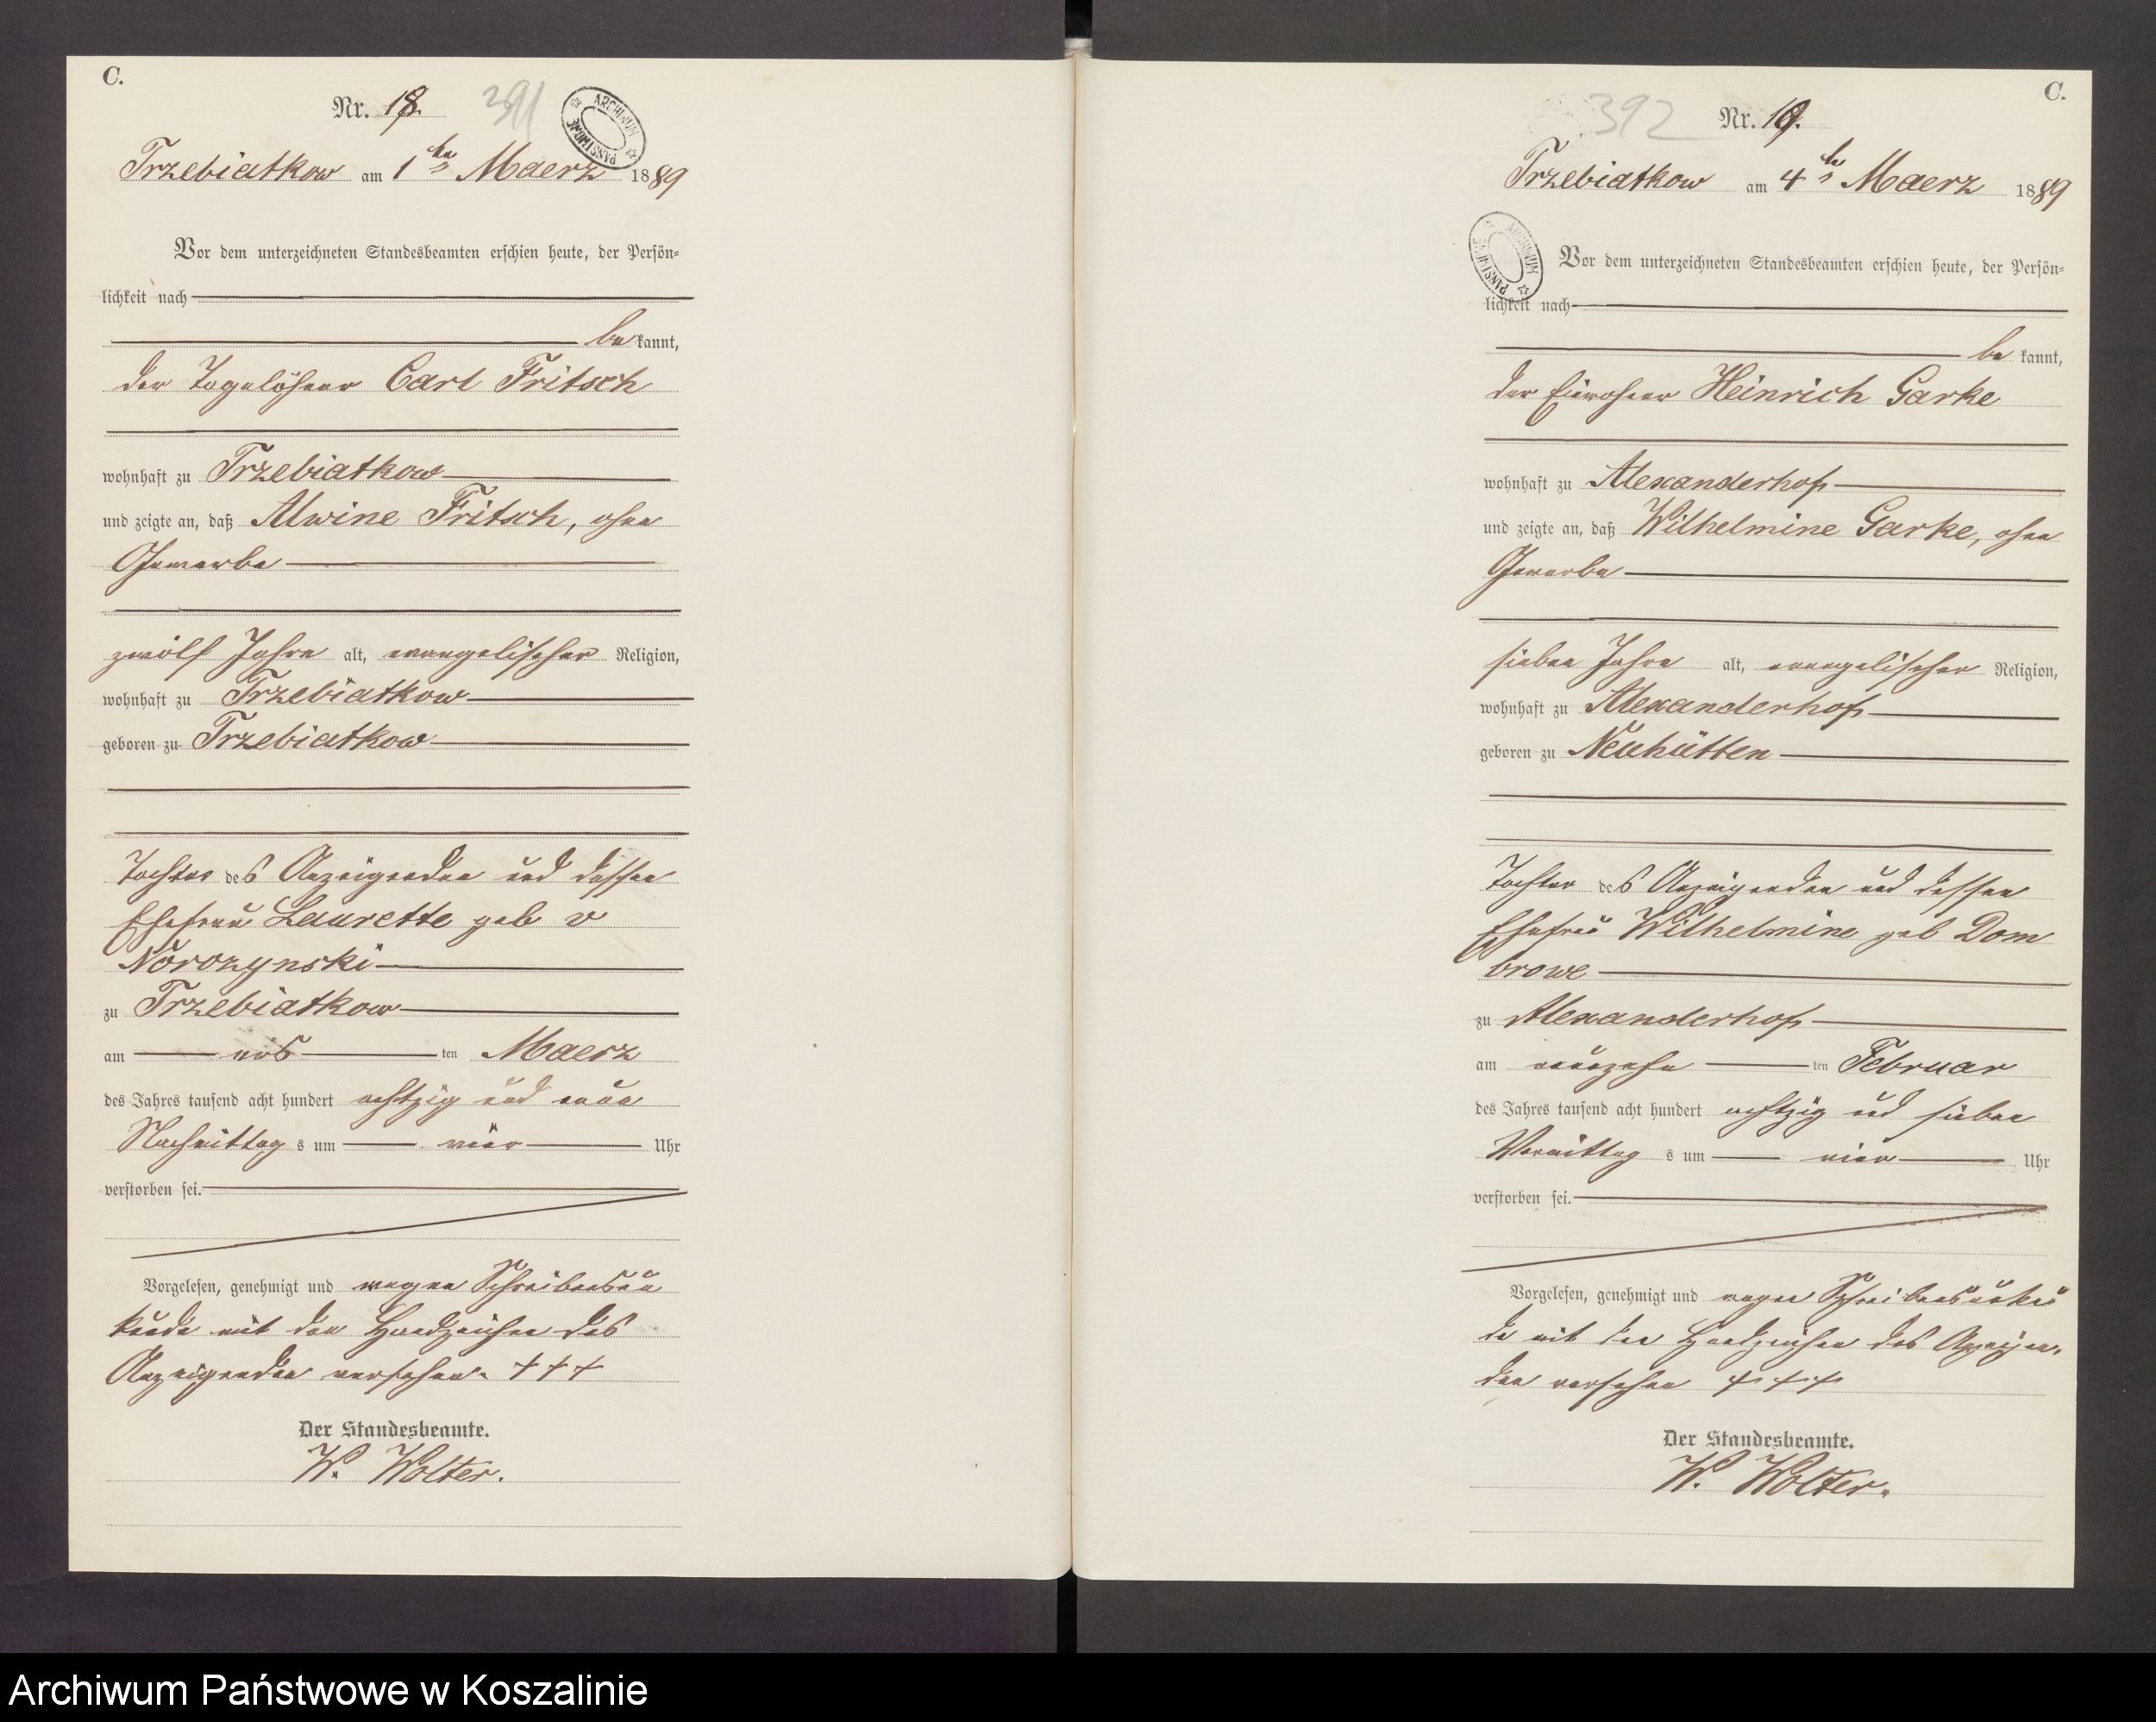 C.
Nr. 18. 391
ARCHIWUM PAŃSTWOWE
Trzebiatkow am 1ten Maerz 1889
Vor dem unterzeichneten Standesbeamten erschien heute, der Persön-
lichkeit nach
be kannt,
der Tagelöhner Carl Fritsch
wohnhaft zu Trzebiatkow
und zeigte an, daß Alwine Fritsch, ohne
Gewerbe
zwölf Jahre alt, evangelischer Religion,
wohnhaft zu Trzebiatkow
geboren zu Trzebiatkow
Tochter des Anzeigenden und dessen
Ehefrau Laurette geb v
Norozynski
zu Trzebiatkow
am ten Maerz
des Jahres tausend acht hundert achtzig und neun
Nachmittag s um vier Uhr
verstorben sei.
Vorgelesen, genehmigt und wegen Schreibensun
kunde mit den Handzeichen des
Anzeigenden versehen. + + +
Der Standesbeamte.
W. Wolter.
C.
392 Nr. 19.
Trzebiatkow am 4ten Maerz 1889
ARCHIWUM PAŃSTWOWE
Vor dem unterzeichneten Standesbeamten erschien heute, der Persön-
lichkeit nach
be kannt,
der Einwohner Heinrich Garke
wohnhaft zu Alexanderhof
und zeigte an, daß Wilhelmine Garke, ohne
Gewerbe
sieben Jahre alt, evangelischer Religion,
wohnhaft zu Alexanderhof
geboren zu Neuhütten
Tochter des Anzeigenden und dessen
Ehefrau Wilhelmine geb Dom
browe
zu Alexanderhof
am neunzehn ten Februar
des Jahres tausend acht hundert achtzig und sieben
Vormittag s um vier Uhr
verstorben sei.
Vorgelesen, genehmigt und wegen Schreibensunkun
de mit den Handzeichen des Anzeigen-
den versehen + + +
Der Standesbeamte.
W. Wolter.
Archiwum Państwowe w Koszalinie